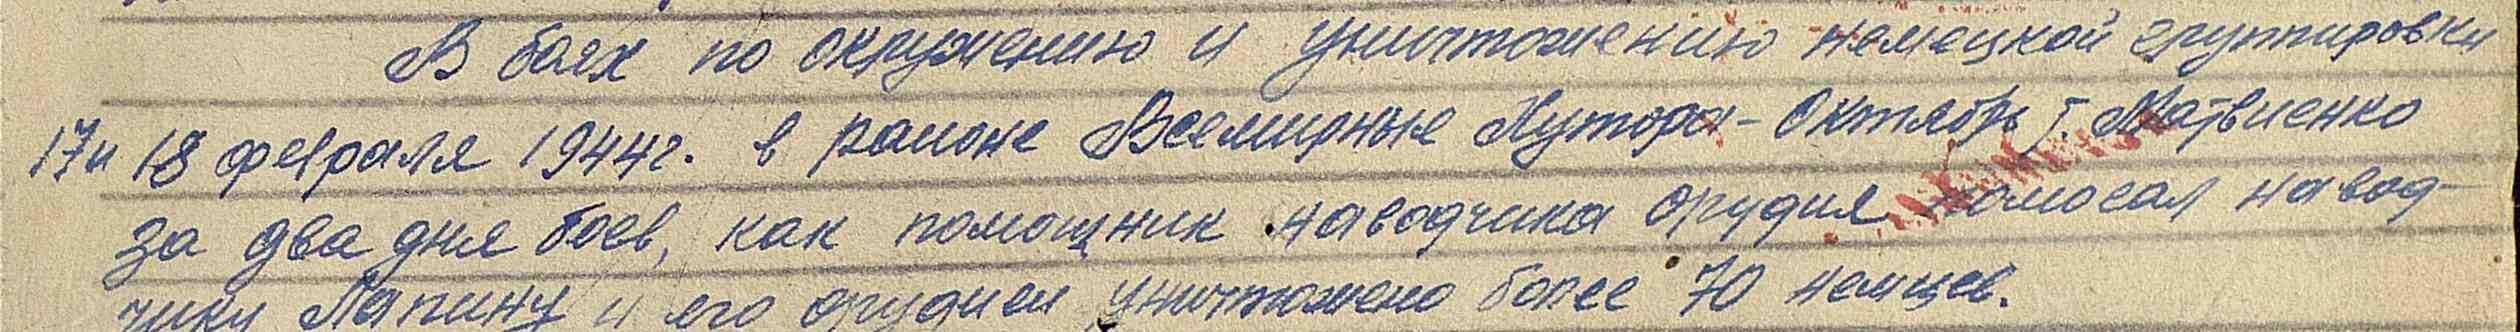 В боях по окружению и уничтожению немецкой группировки
17 и 18 февраля 1944г. в районе Всемирные Хутора - Октябрь т. Матвиенко
за два дня боев, как помощник наводчика орудия помогал навод-
чику Лапину и его орудием уничтожено более 70 немцев.